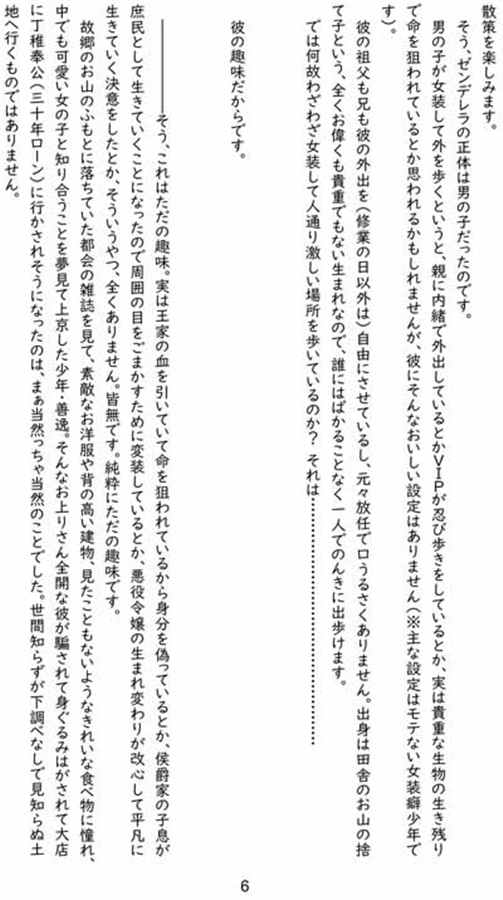 散策を楽しみます。
そう、ゼンデレラの正体は男の子だったのです。
男の子が女装して外を歩くというと、親に内緒で外出しているとかVIPが忍び歩きをしているとか、実は貴重な生物の生き残り
で命を狙われているとか思われるかもしれませんが、彼にそんなおいしい設定はありません(※主な設定はモテない女装癖少年で
す)。
彼の祖父も兄も彼の外出を(修業の日以外は)自由にさせているし、元々放任で口うるさくありません。出身は田舎のお山の捨
て子という、全くお偉くも貴重でもない生まれなので、誰にはばかることなく一人でのんきに出歩けます。
では何故わざわざ女装して人通り激しい場所を歩いているのか? それは……………………………………………
彼の趣味だからです。
――――――そう、これはただの趣味。実は王家の血を引いていて命を狙われているから身分を偽っているとか、侯爵家の子息が
庶民として生きていくことになったので周囲の目をごまかすために変装しているとか、悪役令嬢の生まれ変わりが改心して平凡に
生きていく決意をしたとか、そういうやつ、全くありません。皆無です。純粋にただの趣味です。
故郷のお山のふもとに落ちていた都会の雑誌を見て、素敵なお洋服や背の高い建物、見たこともないようなきれいな食べ物に憧れ、
中でも可愛い女の子と知り合うことを夢見て上京した少年・善逸。そんなお上りさん全開な彼が騙されて身ぐるみはがされて大店
に丁稚奉公(三十年ローン)に行かされそうになったのは、まぁ当然っちゃ当然のことでした。世間知らずが下調べなしで見知らぬ土
地へ行くものではありません。
6